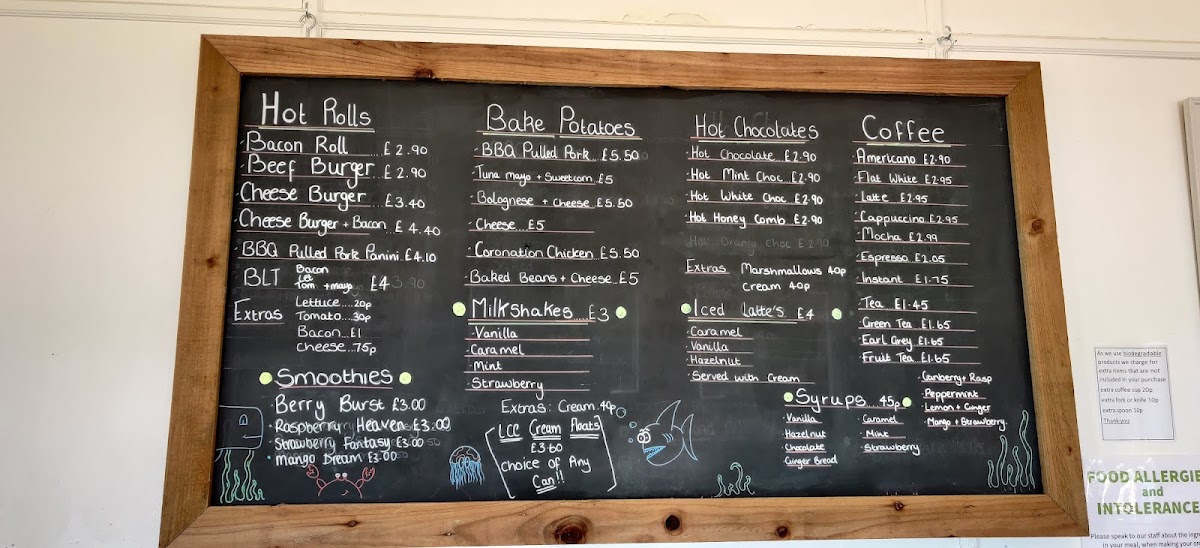 Hot Rolls
Bacon Roll £2.90
Beef Burger £2.90
Cheese Burger £3.40
Cheese Burger + Bacon £4.40
BBQ Pulled Pork Panini £4.10
BLT Bacon Let Tom + mayo £4
Extras Lettuce....20p
Tomato....30p
Bacon...£1
Cheese...75p
Smoothies
Berry Burst £3.00
Raspberry Heaven £3.00
Strawberry Fantasy £3.00
Mango Dream £3.00
Bake Potatoes
BBQ Pulled Pork £5.50
Tuna mayo + Sweetcorn £5
Bolognese + Cheese £5.50
Cheese £5
Coronation Chicken £5.50
Baked Beans + Cheese £5
Milkshakes....£3
Vanilla
Caramel
Mint
Strawberry
Extras: Cream 40p
Ice Cream Floats
£3.60
choice of Any
Can!!
Hot Chocolates
Hot Chocolate £2.90
Hot Mint Choc £2.90
Hot White Choc £2.90
Hot Honey Comb £2.90
Hot Orange Choc £2.90
Extras Marshmallows 40p
Cream 40p
Iced Latte's £4
Caramel
Vanilla
Hazelnut
Served with Cream
Syrups...45p
Vanilla
Hazelnut
Chocolate
Ginger Bread
Caramel
Mint
Strawberry
Coffee
Americano £2.90
Flat White £2.95
Latte £2.95
Cappuccino £2.95
Mocha £2.99
Espresso £2.05
Instant £1.75
Tea £1.45
Green Tea £1.65
Earl Grey £1.65
Fruit Tea £1.65
Cranberry + Rasp
Peppermint
Lemon + Ginger
Mango + Strawberry
As we use biodegradable
products we charge for
extra items that are not
included in your purchase
extra coffee cup 20p
extra fork or knife 10p
extra spoon 10p
Thank you
FOOD ALLERGIE
and
INTOLERANCE
Please speak to our staff about the
in your meal, when making your